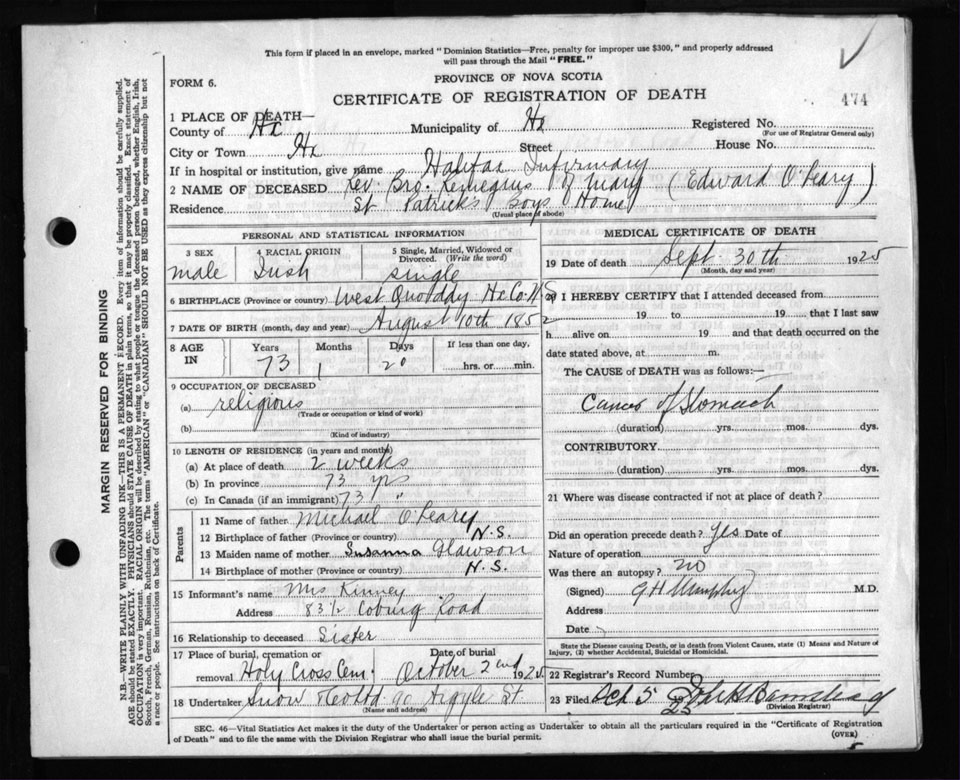 This form if placed in an envelope, marked "Dominion Statistics—Free, penalty for improper use $300," and properly addressed
will pass through the Mail "FREE."
PROVINCE OF NOVA SCOTIA
FORM 6.
CERTIFICATE OF REGISTRATION OF DEATH
474
1 PLACE OF DEATH—
County of Hx Municipality of Hx Registered No.
(For use of Registrar General only)
City or Town Hx Street House No.
If in hospital or institution, give name Halifax Infirmary
2 NAME OF DECEASED Rev. Bro. Remegius of Mary (Edward O'Leary)
Residence St Patrick's Boys Home
(Usual place of abode)
PERSONAL AND STATISTICAL INFORMATION
3 SEX 4 RACIAL ORIGIN 5 Single, Married, Widowed or
Divorced. (Write the word)
male Irish single
6 BIRTHPLACE (Province or country) West Quoddy Hx Co. N.S.
7 DATE OF BIRTH (month, day and year) August 10th 1852
8 AGE IN Years Months Days If less than one day.
73 1 20 hrs. or min.
9 OCCUPATION OF DECEASED
(a) religious
(Trade or occupation or kind of work)
(b)
(Kind of industry)
10 LENGTH OF RESIDENCE (in years and months)
(a) At place of death 2 weeks
(b) In province 73 yrs
(c) In Canada (if an immigrant) 73 "
Parents
11 Name of father Michael O'Leary
12 Birthplace of father (Province or country) N.S.
13 Maiden name of mother Susanna Glawson
14 Birthplace of mother (Province or country) N.S.
15 Informant's name Mrs Kinney
Address 83½ Coburg Road
16 Relationship to deceased Sister
17 Place of burial, cremation or Date of burial
removal Holy Cross Cem. October 2nd 1925
18 Undertaker Snow & Co Ltd 90 Argyle St.
(Name and address)
MEDICAL CERTIFICATE OF DEATH
19 Date of death Sept. 30th 1925
(Month, day and year)
20 I HEREBY CERTIFY that I attended deceased from
19 to 19 that I last saw
h alive on 19 and that death occurred on the
date stated above, at m.
The CAUSE of DEATH was as follows:—
Cancer of Stomach
(duration) yrs. mos. dys.
CONTRIBUTORY
(duration) yrs. mos. dys.
21 Where was disease contracted if not at place of death?
Did an operation precede death? Yes Date of
Nature of operation
Was there an autopsy? no
(Signed) G H Murphy M.D.
Address
Date
State the Disease causing Death, or in death from Violent Causes, state (1) Means and Nature of
Injury, (2) whether Accidental, Suicidal or Homicidal.
22 Registrar's Record Number
23 Filed Oct 5
(Division Registrar)
SEC. 46—Vital Statistics Act makes it the duty of the Undertaker or person acting as Undertaker to obtain all the particulars required in the "Certificate of Registration
of Death" and to file the same with the Division Registrar who shall issue the burial permit.
(OVER)
MARGIN RESERVED FOR BINDING
N.B.—WRITE PLAINLY WITH UNFADING INK—THIS IS A PERMANENT RECORD. Every item of information should be carefully supplied.
AGE should be stated EXACTLY. PHYSICIANS should STATE CAUSE OF DEATH in plain terms, so that it may be properly classified. Exact statement of
OCCUPATION is very important. RACIAL ORIGIN will be described by stating to what people or tongue the deceased person belonged, whether English, Irish,
Scotch, French, German, Russian, Ruthenian, etc. The terms "AMERICAN" or "CANADIAN" SHOULD NOT BE USED as they express citizenship but not
a race or people. See instructions on back of Certificate.